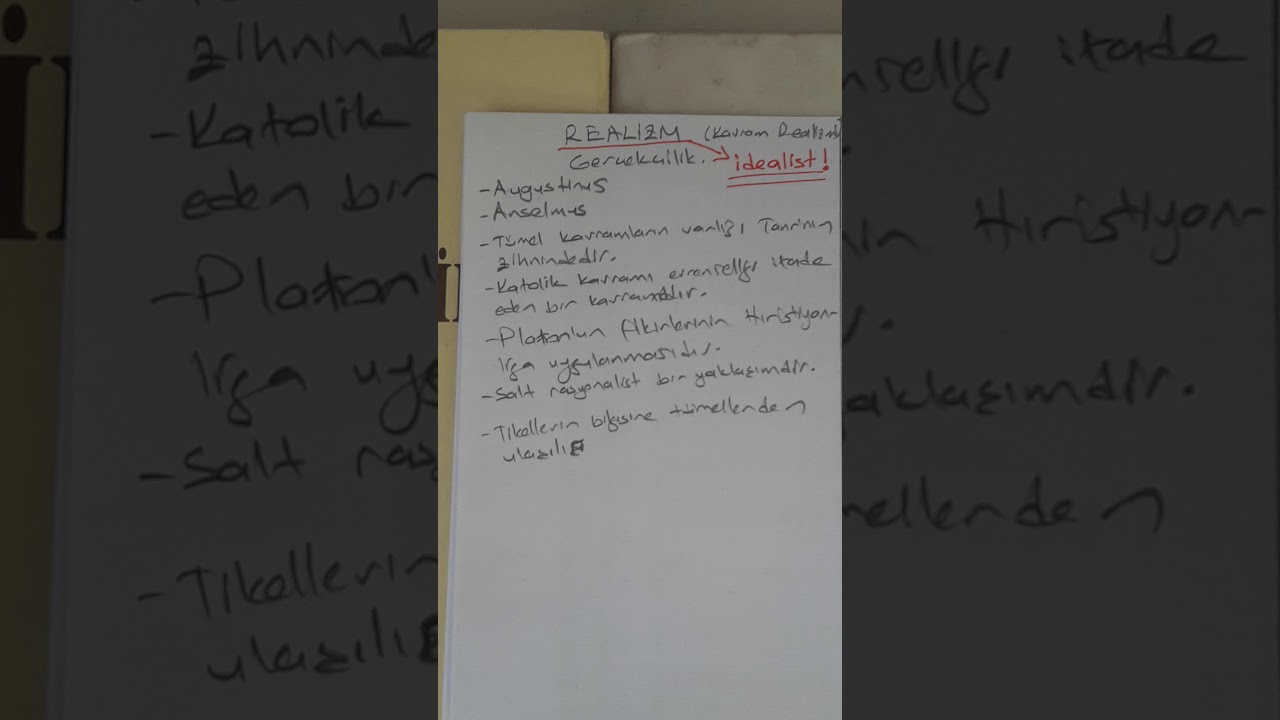 REALIZM (Kavram Realizmi)
Gerçekçilik. → idealist!
- Augustinus
- Anselmus
- Tümel kavramların varlığı Tanrının
zihnindedir.
- Katolik kavramı evrenselliği ifade
eden bir kavramdır.
- Platon'un fikirlerinin Hıristiyan-
lığa uygulanmasıdır.
- Salt rasyonalist bir yaklaşımdır.
- Tikellerin bilgisine tümellerden
ulaşılır